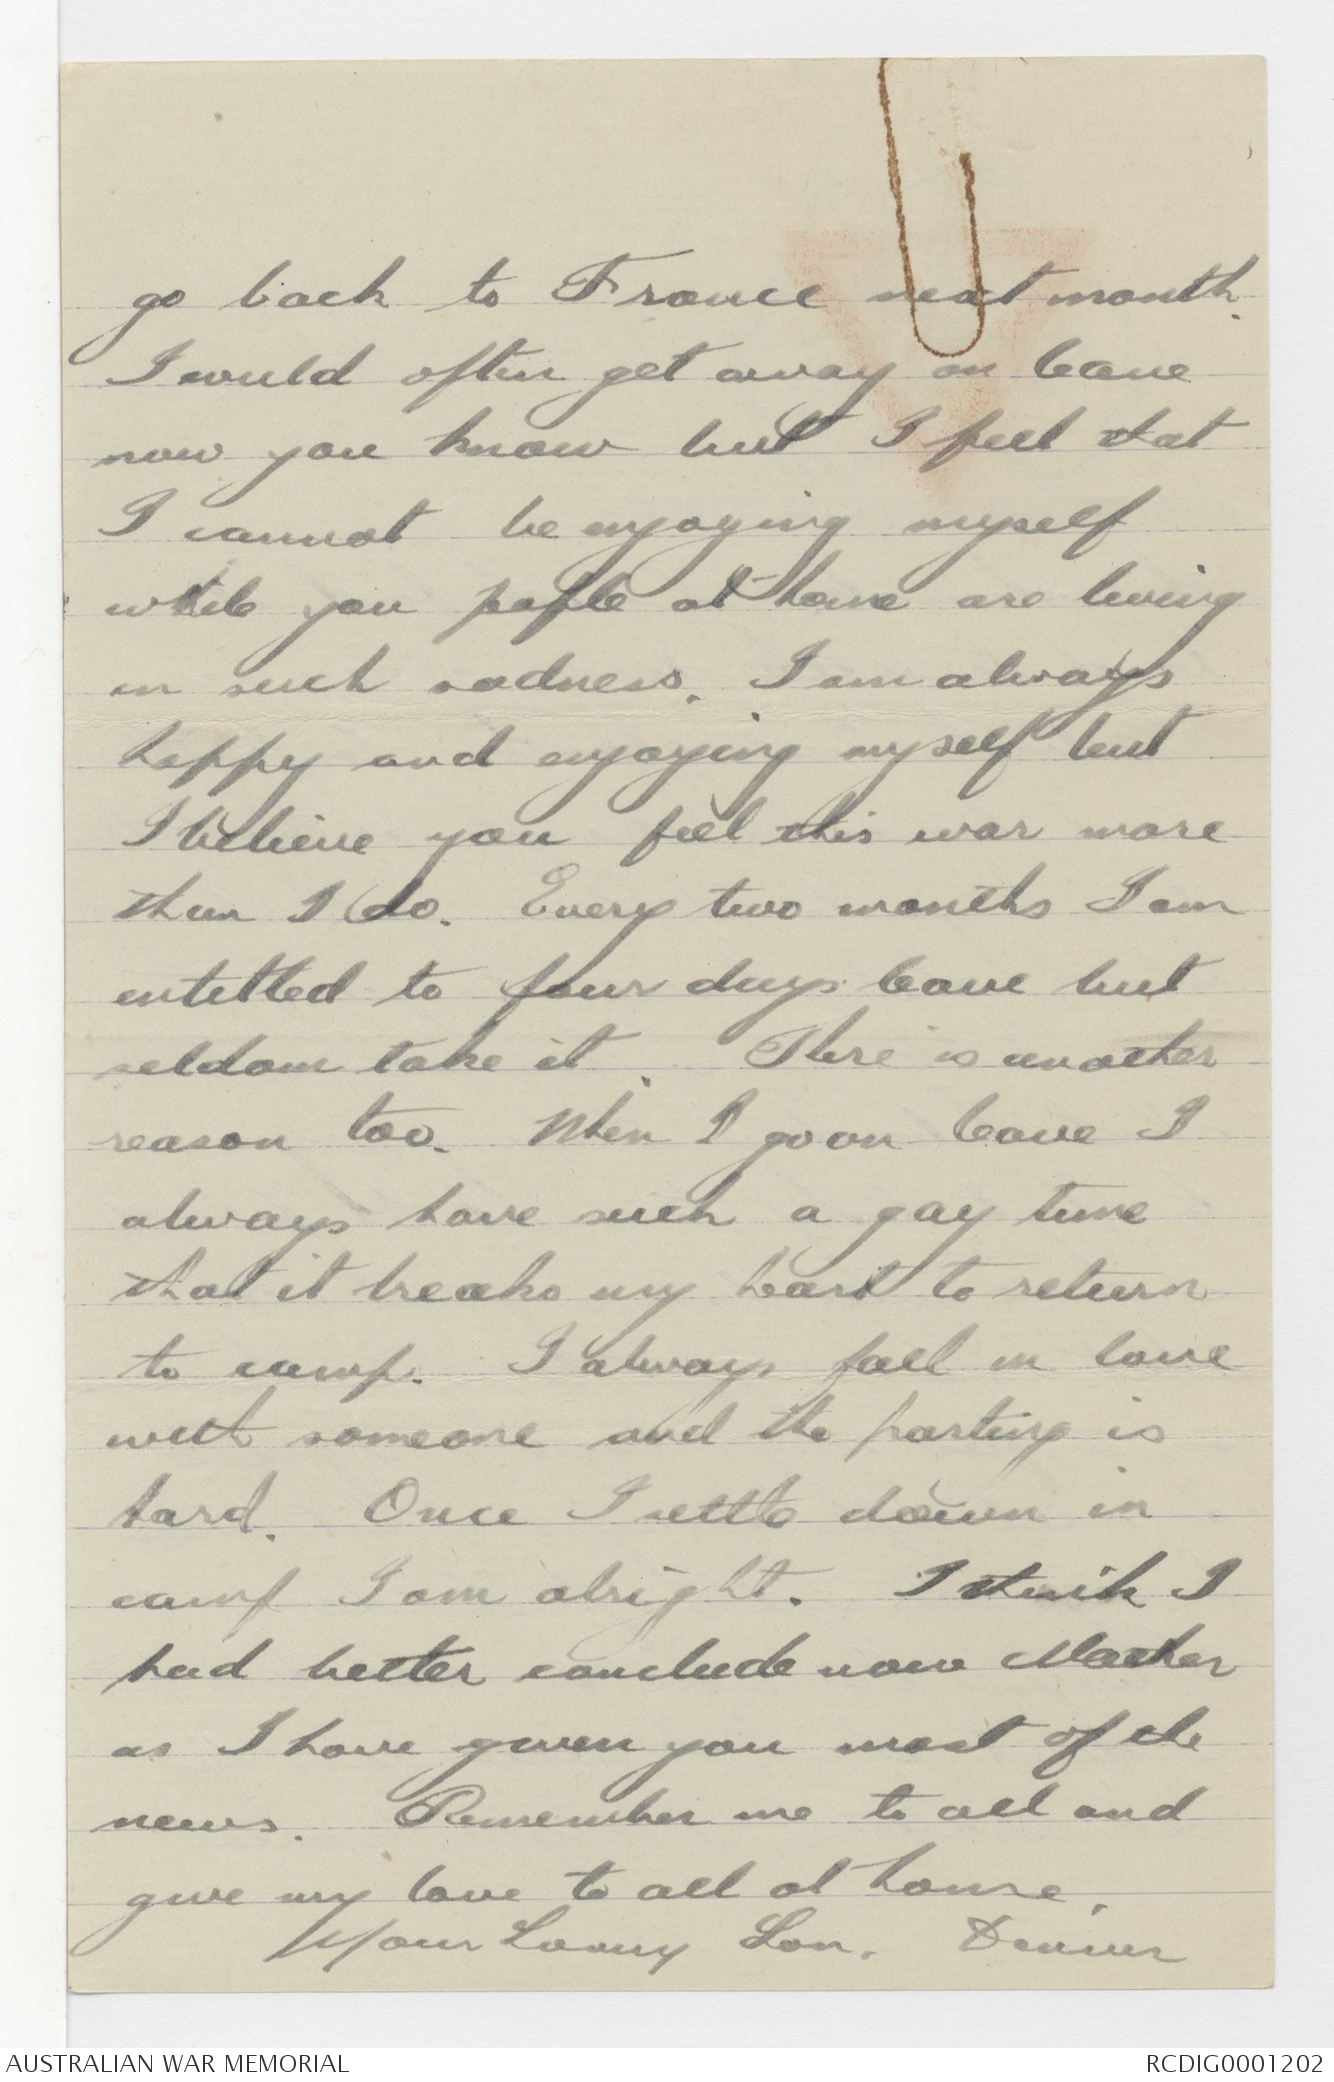 go back to France next month.
I would often get away on leave
now you know but I feel that
I cannot be enjoying myself
while you pople at home are living
in such sadness. I am always
happy and enjoying myself but
I believe you feel this war more
than I do. Every two months I am
entitled to four days leave but
seldom take it. There is another
reason too. When I go on leave I
always have such a gay time
that it breaks my heart to return
to camp. I always fall in love
with someone and the parting is
hard. Once I settle down in
camp I am alright. I think I
had better conclude now Mother
as I have given you most of the
news. Remember me to all and
give my love to all at home.
Your Loving Son. Denver
AUSTRALIAN WAR MEMORIAL
RCDIG0001202